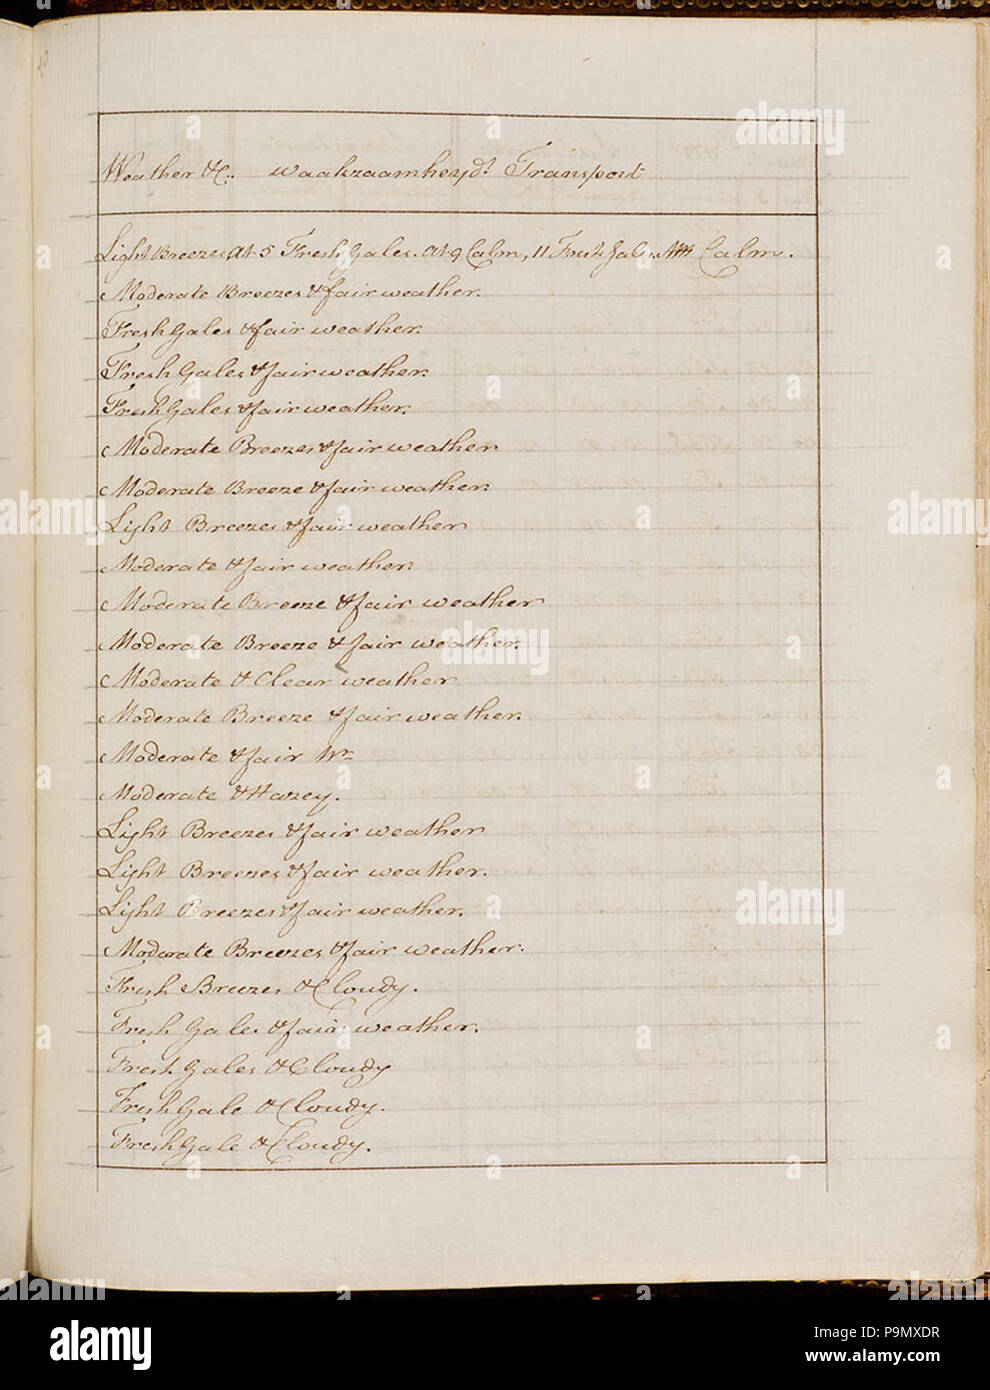 Weather &c.. Waakzaamheyd.t Transport
Light Breezes, At 5 Fresh Gales. At 9 Calm, 11 Fresh Gales, Calm.
Moderate Breezes & fair weather.
Fresh Gales & fair weather.
Fresh Gales & fair weather.
Fresh Gales & fair weather.
Moderate Breezes & fair weather
Moderate Breeze & fair weather.
Light Breezes & fair weather
Moderate & fair weather.
Moderate Breeze & fair weather
Moderate Breeze & fair weather.
Moderate & Clear weather
Moderate Breeze & fair weather.
Moderate & fair Wr
Moderate & Hazey.
Light Breezes & fair weather
Light Breezes & fair weather.
Light Breezes & fair weather.
Moderate Breezes & fair weather.
Fresh Breezes & Cloudy.
Fresh Gales & fair weather.
Fresh Gales & Cloudy
Fresh Gale & Cloudy.
Fresh Gale & Cloudy.
alamy
Image ID: P9MXDR
www.alamy.com